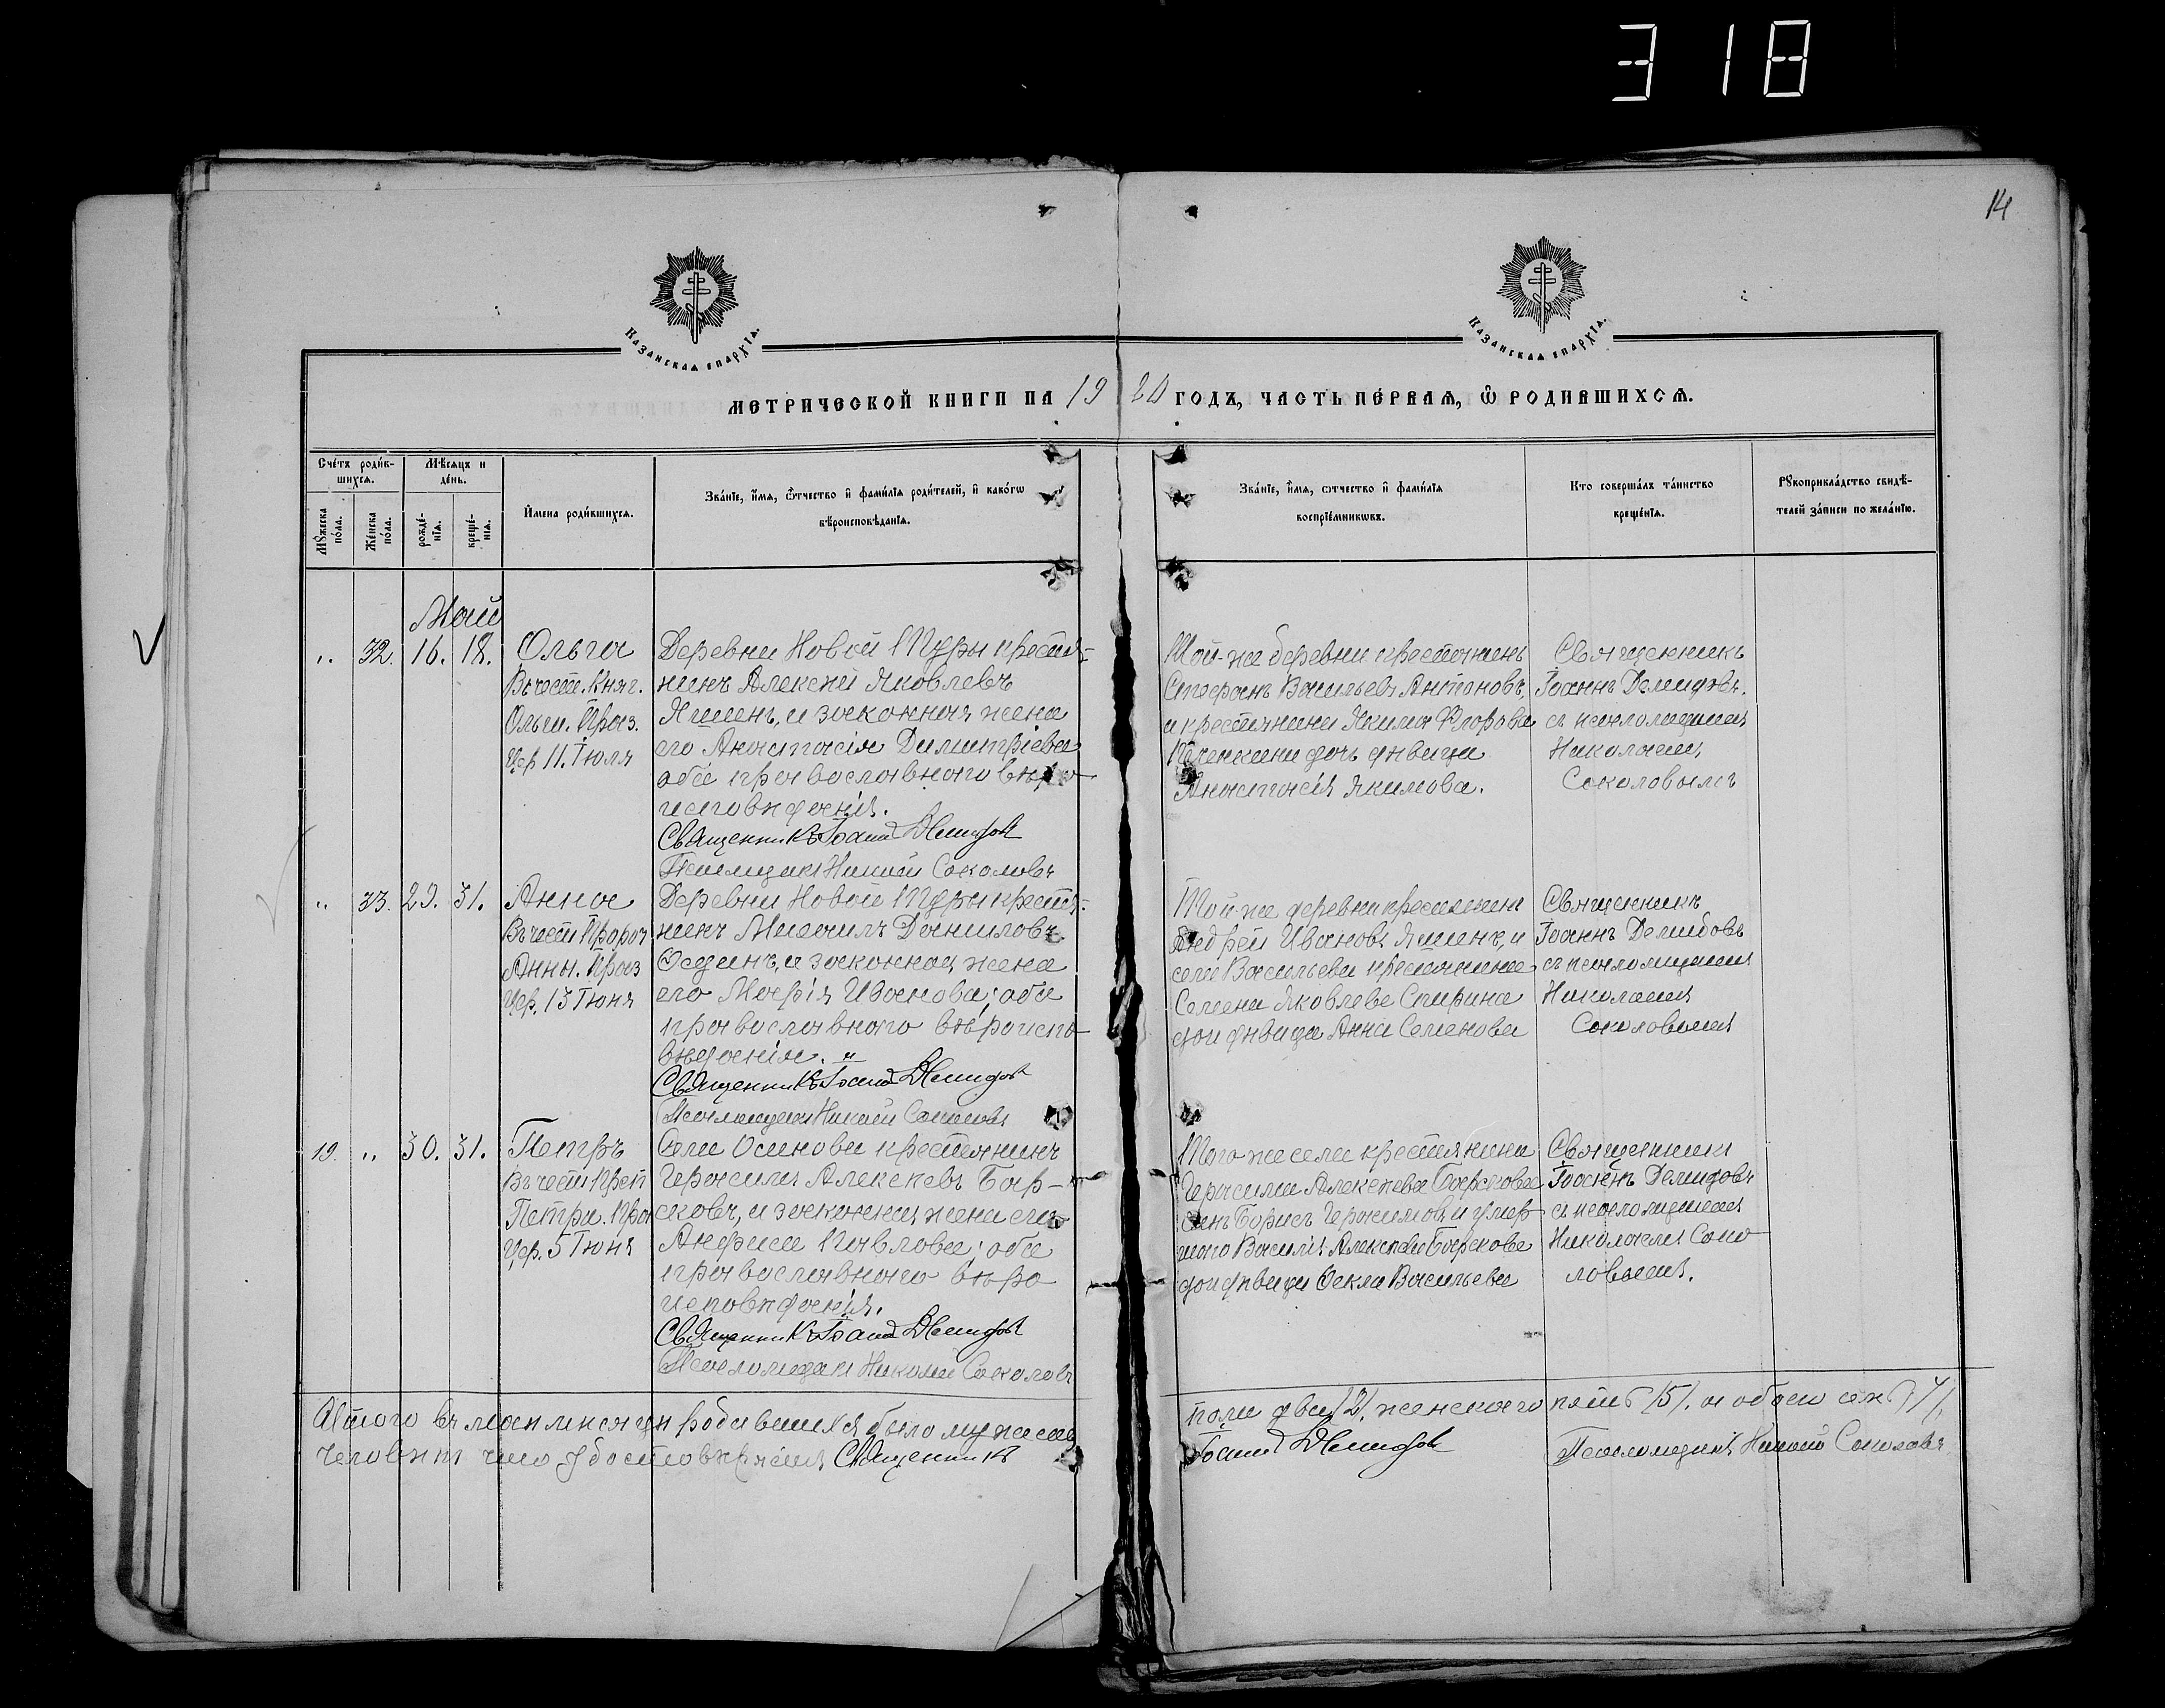 318
14
Казанская епархїа.
Казанская епархїа.
МЕТРИЧЕСКОЙ КНИГИ НА 19
20 ГОДЪ, ЧАСТЬ ПЕРВАЯ, Ѡ РОДИВШИХСЯ.
Счетъ родив-
шихся.
Мꙋжеска
пола.
Женска
пола.
Мѣсяцъ и
день.
рожде-
нія.
креще-
нія.
Имена родившихся.
Званїе, имя, ѿчество и фамилїя родителей, и какогѡ
вѣроисповѣданїя.
Званїе, имя, ѿчество и фамилїя
воспрїемникѡвъ.
Кто совершалъ таинство
крещенїя.
Рꙋкоприкладство свидѣ-
телей записи по желанїю.
Май
„ 32. 16. 18.
Ольга
Въ честь Княг.
Ольги. Праз.
Цер 11. Іюля
Деревни Новой Шуры крестья-
нинъ Алексѣй Яковлевъ
Яшинъ, и законная жена
его Анастасія Димитріева
обе православнаго вѣро-
исповѣданія.
Священникъ Іоаннъ Демидовъ
Псаломщикъ Николай Соколовъ
Той-же деревни крестьянинъ
Стефанъ Васильевъ Антоновъ,
и крестьянина Якима Флорова
дочь дѣвица
Анастасія Якимова.
Священникъ
Іоаннъ Демидовъ.
съ псаломщикомъ
Николаемъ
Соколовымъ
„ 33. 29. 31.
Анна
Въ честь Пророч
Анны. Праз
Цер. 13 Іюня
Деревни Новой Шуры крестья-
нинъ Михаилъ Даниловъ
и законная жена
его Марфія Иванова; обе
православнаго вѣроиспо-
вѣданія. „
Священникъ Іоаннъ Демидовъ
Псаломщикъ Николай Соколовъ
Той-же деревни крестьянинъ
Андрей Ивановъ Яшинъ, и
села Васильева крестьянина
Семена Яковлева Спирина
дочь дѣвица Анна Семенова
Священникъ
Іоаннъ Демидовъ
съ псаломщикомъ
Николаемъ
Соколовымъ
19. „ 30. 31.
Петръ
Въ честь Преп
Петра. Праз
Цер. 5 Іюня
Села Осинова крестьянинъ
Герасимъ Алексѣевъ Бар-
сковъ, и законная жена его
Анфиса Павлова; обе
православнаго вѣро-
исповѣданія.
Священникъ Іоаннъ Демидовъ
Псаломщикъ Николай Соколовъ
Того же села крестьянина
Герасима Алексѣева Барскова
сынъ Борисъ Герасимовъ и умер-
шаго Василія Алексѣева Барскова
дочь дѣвица Фекла Васильева
Священникъ
Іоаннъ Демидовъ
съ псаломщикомъ
Николаемъ Соко
ловымъ.
Итого въ маѣ мѣсяцѣ родившихся было мужеска
пола два /2/, женскаго пять /5/. а обоего /7/,
человѣкъ что удостовѣряемъ Священникъ
Іоаннъ Демидовъ
Псаломщикъ Николай Соколовъ